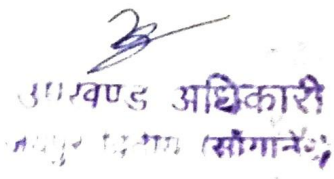 उपखण्ड अधिकारी
जयपुर (सांगानेर)